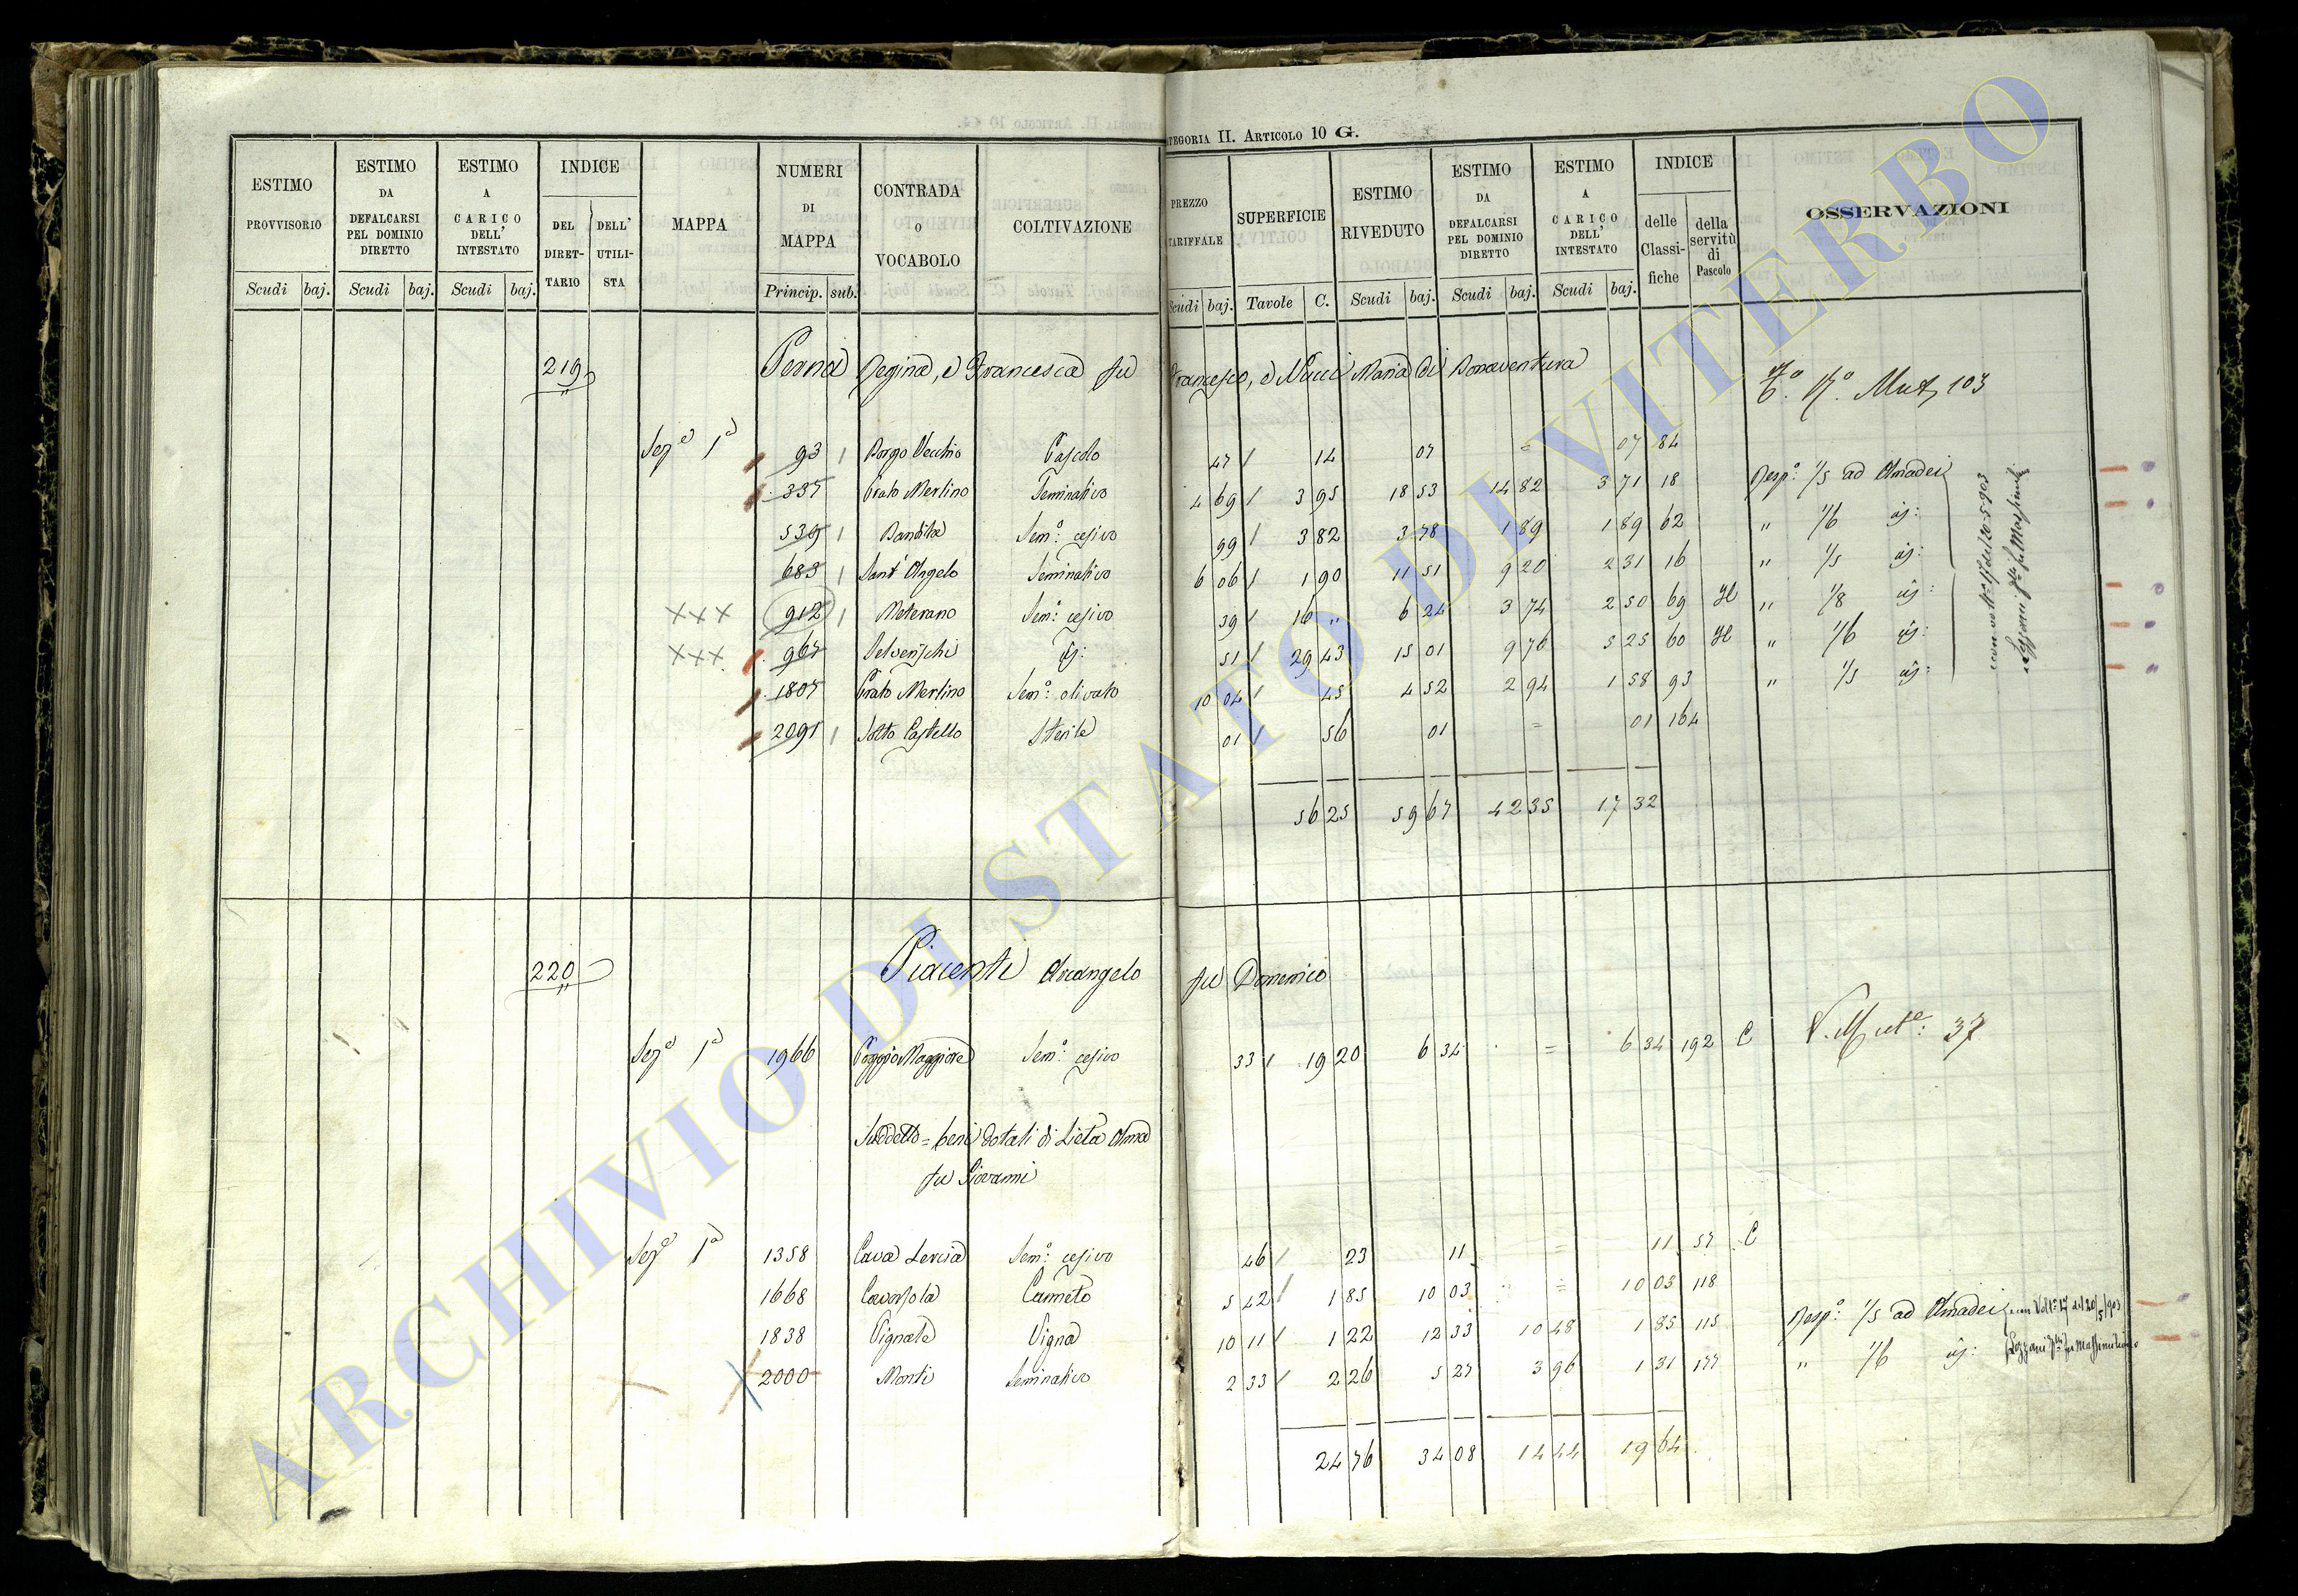 CATEGORIA II. ARTICOLO 10 G.
ESTIMO PROVVISORIO Scudi baj.
ESTIMO DA DEFALCARSI PEL DOMINIO DIRETTO Scudi baj.
ESTIMO A CARICO DELL' INTESTATO Scudi baj.
INDICE DEL DIRET-TARIO DELL' UTILI-STA
MAPPA
NUMERI DI MAPPA Princip. sub.
CONTRADA O VOCABOLO
COLTIVAZIONE
PREZZO TARIFFALE Scudi baj.
SUPERFICIE Tavole C.
ESTIMO RIVEDUTO Scudi baj.
ESTIMO DA DEFALCARSI PEL DOMINIO DIRETTO Scudi baj.
ESTIMO A CARICO DELL' INTESTATO Scudi baj.
INDICE delle Classi-fiche della servitù di Pascolo
OSSERVAZIONI
219 Perna Regina, e Francesca fu Francesco, e Nucci Maria di Bonaventura Mut 103
Sez.a 1a 93 Borgo Vecchio Pascolo 47 14 07 = 07 84
337 Prato Merlino Seminativo 4 69 3 95 18 53 14 82 3 71 18 Resp.o 1/5 ad Amadei
539 Bandita Sem.o cesivo 99 3 82 3 78 1 89 1 89 62 " 1/6
683 Sant' Angelo Seminativo 6 06 1 90 11 51 9 20 2 31 16 " 1/5
XXX 912 Meterano Sem.o cesivo 39 16 " 6 24 3 74 2 50 69 " 1/8
XXX 967 51 29 43 15 01 9 76 5 25 60 " 1/6
1807 Prato Merlino Sem.o olivato 10 04 45 4 52 2 94 1 58 93 " 1/5
2091 Sotto Castello Sterile 01 56 01 = 01 164
56 25 59 67 42 35 17 32
220 Piacenti Arcangelo fu Domenico
Sez.a 1a 1966 Poggio Maggiore Sem.o cesivo 33 19 20 6 34 = 6 34 192 C V. Mut.e: 37
Suddetto = beni dotali di Lieta Anna
fu Giovanni
Sez.a 1a 1358 Cava Lercia Sem.o cesivo 46 23 11 = 11 57 C
1668 Canneto 5 42 1 85 10 03 = 10 03 118
1838 Vignale Vigna 10 11 1 22 12 33 10 48 1 85 115 Resp.o 1/5 ad Amadei
2000 Monti Seminativo 2 33 2 26 5 27 3 96 1 31 177 " 1/6
24 76 34 08 14 44 19 64
ARCHIVIO DI STATO DI VITERBO